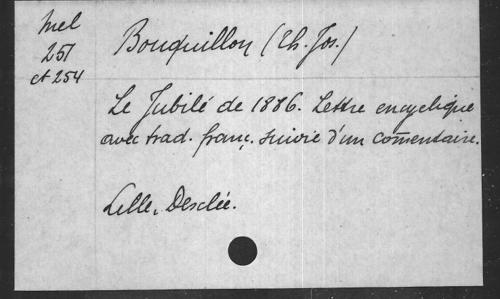 Mel
251
et 254
Bouquillon (Th. Jos.)
Le Jubilé de 1886. Lettre encyclique
avec trad. franç. suivie d'un comentaire.
Lille, Desclée.